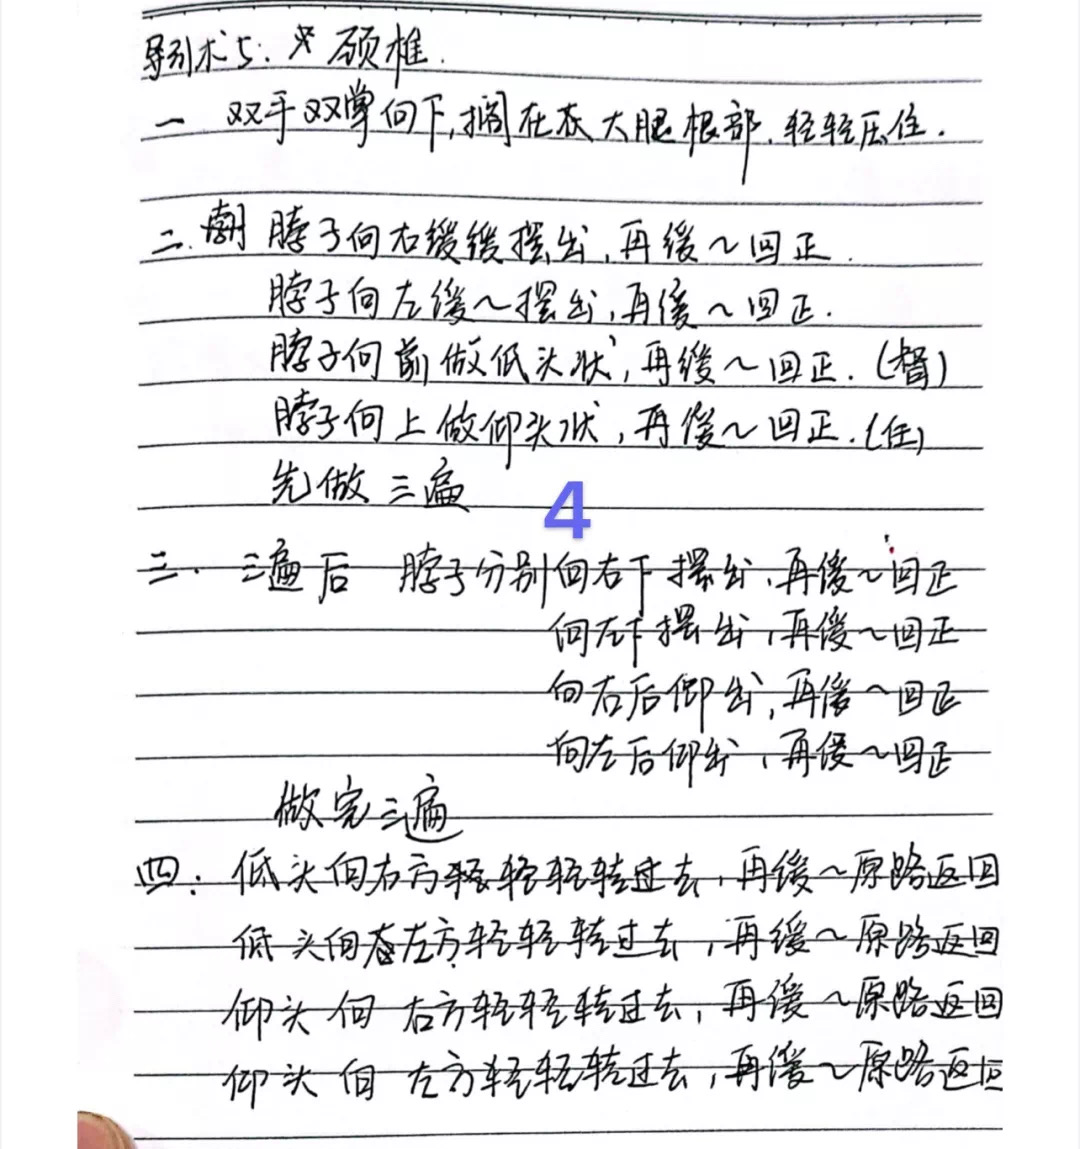 导引术5: 颈椎.
一 双手双掌向下,搁在在大腿根部.轻轻压住.
二. 脖子向右缓缓摆出,再缓~回正.
脖子向左缓~摆出,再缓~回正.
脖子向前做低头状,再缓~回正.(督)
脖子向上做仰头状,再缓~回正.(任)
先做三遍
4
三. 三遍后 脖子分别向右下摆出,再缓~回正
向左下摆出,再缓~回正
向右后仰出,再缓~回正
向左后仰出,再缓~回正
做完三遍
四: 低头向右方轻轻转过去,再缓~原路返回
低头向左方轻轻转过去,再缓~原路返回
仰头向右方轻轻转过去,再缓~原路返回
仰头向左方轻轻转过去,再缓~原路返回